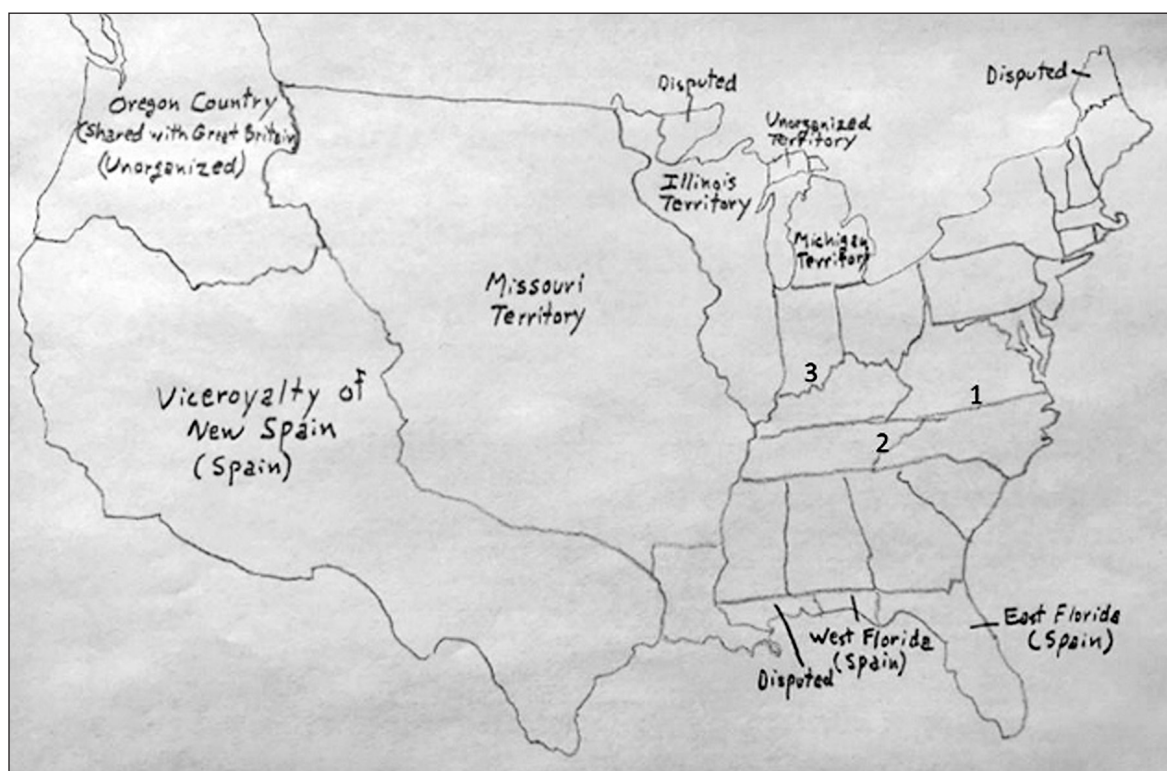 Disputed
Disputed
Oregon Country
(Shared with Great Britain)
(Unorganized)
Unorganized
Territory
Illinois
Territory
Michigan
Territory
Missouri
Territory
3
Viceroyalty of
New Spain
(Spain)
1
2
East Florida
(Spain)
West Florida
(Spain)
Disputed